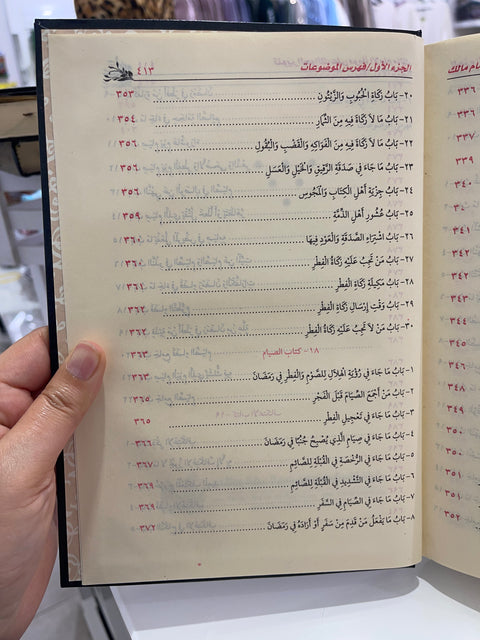 الجزء الأول/فهرس الموضوعات ٤١٣
٢٠- بَابُ زَكَاةِ الْحُبُوبِ وَالزَّيْتُونِ ٣٥٢
٢١- بَابُ مَا لَا زَكَاةَ فِيهِ مِنَ الثِّمَارِ ٣٥٤
٢٢- بَابُ مَا لَا زَكَاةَ فِيهِ مِنَ الْفَوَاكِهِ وَالْقَضْبِ وَالْبُقُولِ ٣٥٦
٢٣- بَابُ مَا جَاءَ فِي صَدَقَةِ الرَّقِيقِ وَالْخَيْلِ وَالْعَسَلِ ٣٥٦
٢٤- بَابُ جِزْيَةِ أَهْلِ الْكِتَابِ وَالْمَجُوسِ ٣٥٦
٢٥- بَابُ عُشُورِ أَهْلِ الذِّمَّةِ ٣٥٩
٢٦- بَابُ اشْتِرَاءِ الصَّدَقَةِ وَالْعَوْدِ فِيهَا ٣٦٠
٢٧- بَابُ مَنْ تَجِبُ عَلَيْهِ زَكَاةُ الْفِطْرِ ٣٦١
٢٨- بَابُ مَكِيلَةِ زَكَاةِ الْفِطْرِ
٢٩- بَابُ وَقْتِ إِرْسَالِ زَكَاةِ الْفِطْرِ
٣٠- بَابُ مَنْ لَا تَجِبُ عَلَيْهِ زَكَاةُ الْفِطْرِ ٣٦٢
١٨- كتاب الصيام ٣٦٣
١- بَابُ مَا جَاءَ فِي رُؤْيَةِ الْهِلَالِ لِلصَّوْمِ وَالْفِطْرِ فِي رَمَضَانَ ٣٦٣
٢- بَابُ مَنْ أَجْمَعَ الصِّيَامَ قَبْلَ الْفَجْرِ ٣٦٥
٣- بَابُ مَا جَاءَ فِي تَعْجِيلِ الْفِطْرِ ٣٦٥
٤- بَابُ مَا جَاءَ فِي صِيَامِ الَّذِي يُصْبِحُ جُنُبًا فِي رَمَضَانَ ٣٦٦
٥- بَابُ مَا جَاءَ فِي الرُّخْصَةِ فِي الْقُبْلَةِ لِلصَّائِمِ ٣٦٧
٦- بَابُ مَا جَاءَ فِي التَّشْدِيدِ فِي الْقُبْلَةِ لِلصَّائِمِ ٣٦٩
٧- بَابُ مَا جَاءَ فِي الصِّيَامِ فِي السَّفَرِ ٣٦٩
٨- بَابُ مَا يَفْعَلُ مَنْ قَدِمَ مِنْ سَفَرٍ أَوْ أَرَادَهُ فِي رَمَضَانَ ٣٧٢
مام مالك
٣٣٦
٣٣٦
٣٣٧
٣٣٩
٣٤٠
٣٤١
٣٤٢
٣٤٢
٣٤٣
٣٤٤
٣٤٥
٣٤٦
٣٤٨
٣٤٩
٣٥٠
٣٥٠
٣٥١
٣٥١
٣٥٢